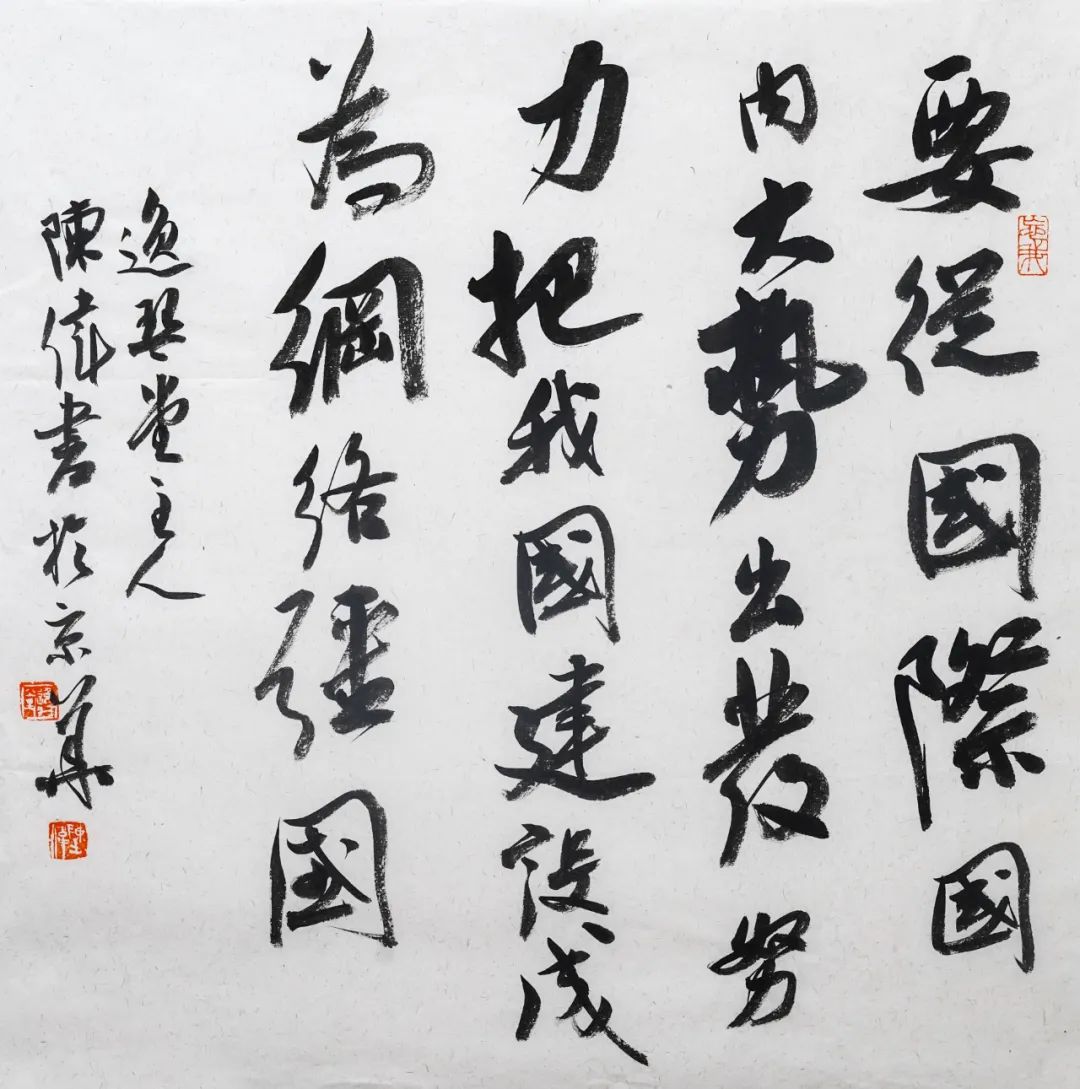 要從國際國
内大勢出發努
力把我國建設成
為綱絡强國
逸琴堂主人
陳偉書於京華